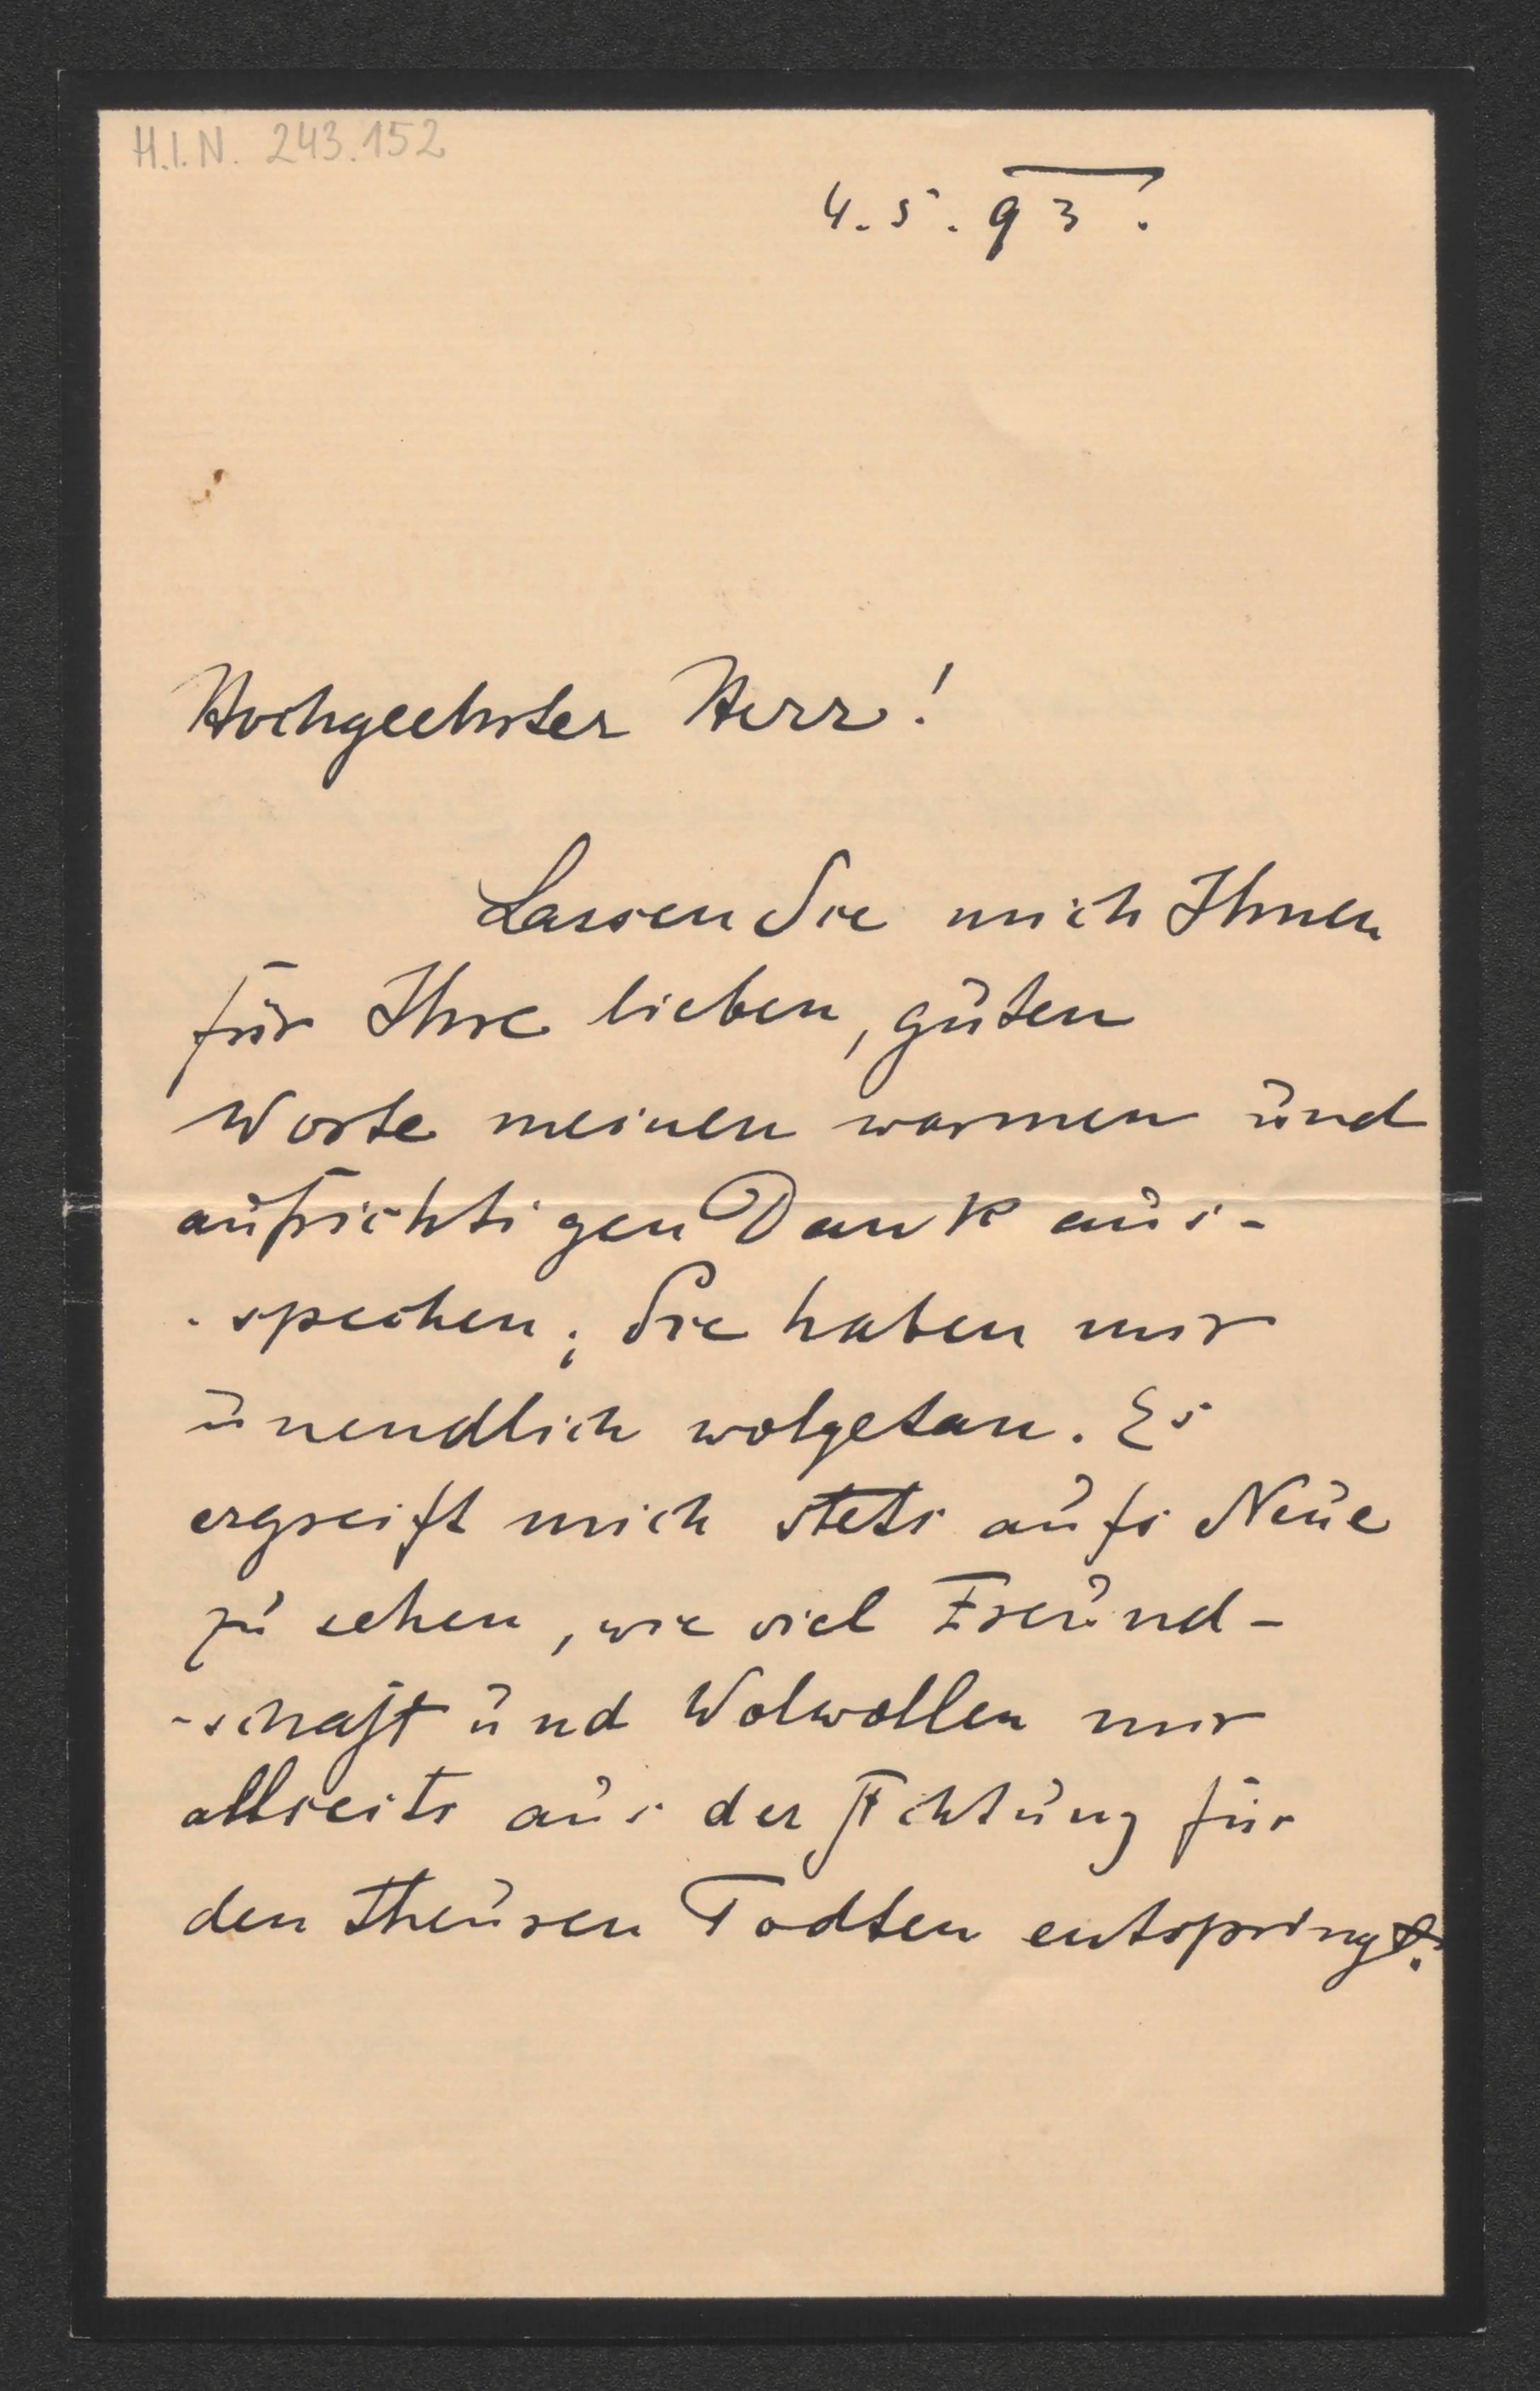 H.I.N. 243.152
4. 5. 93.
Hochgeehrter Herr!
Lassen Sie mich Ihnen
für Ihre lieben, guten
Worte meinen warmen und
aufrichtigen Dank aus-
-sprechen; Sie haben mir
unendlich wolgetan. Es
ergreift mich stets aufs Neue
zu sehen, wie viel Freund-
-schaft und Wolwollen mir
allseits aus der Achtung für
den theuren Todten entspringt.